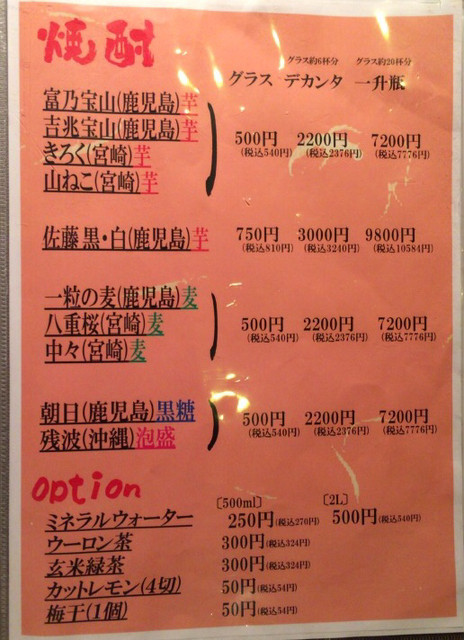 焼酎
グラス約6杯分 グラス約20杯分
グラス デカンタ 一升瓶
富乃宝山(鹿児島)芋
吉兆宝山(鹿児島)芋
500円 2200円 7200円
(税込540円) (税込2376円) (税込7776円)
きろく(宮崎)芋
山ねこ(宮崎)芋
佐藤 黒・白(鹿児島)芋 750円 3000円 9800円
(税込810円) (税込3240円) (税込10584円)
一粒の麦(鹿児島)麦
八重桜(宮崎)麦 500円 2200円 7200円
(税込540円) (税込2376円) (税込7776円)
中々(宮崎)麦
朝日(鹿児島)黒糖 500円 2200円 7200円
(税込540円) (税込2376円) (税込7776円)
残波(沖縄)泡盛
Option
〔500ml〕 〔2L〕
ミネラルウォーター 250円(税込270円) 500円(税込540円)
ウーロン茶 300円(税込324円)
玄米緑茶 300円(税込324円)
カットレモン(4切) 50円(税込54円)
梅干(1個) 50円(税込54円)